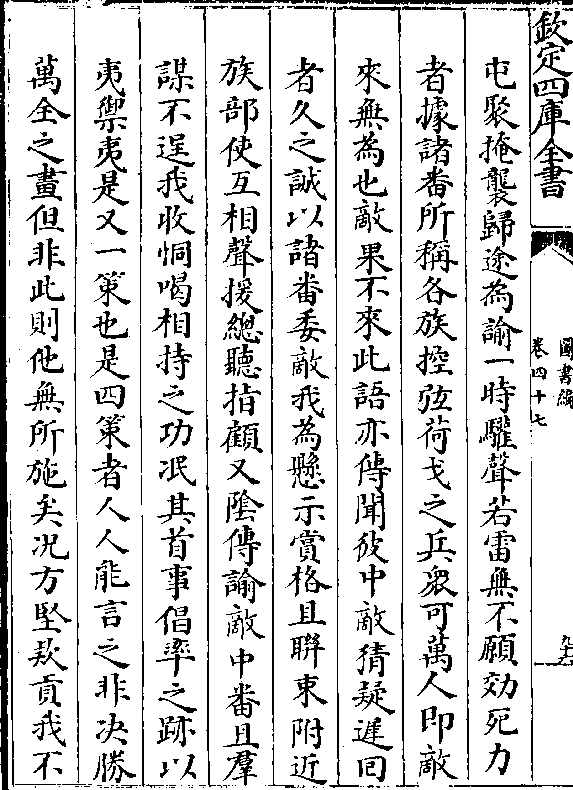 欽定四庫全書
圖書編
卷四十七
屯聚掩襲歸途為諭一時驩聲若雷無不願効死力
者據諸番所稱各族控弦荷戈之兵衆可萬人即敵
來無為也敵果不來此語亦傳聞彼中敵猜疑遲回
者久之誠以諸番委敵我為懸示賞格且聯束附近
族部使互相聲援總聽指顧又陰傳諭敵中番且羣
謀不逞我收恫喝相持之功冺其首事倡率之跡以
夷禦夷是又一策也是四策者人人能言之非决勝
萬全之畫但非此則他無所施矣况方堅欵貢我不